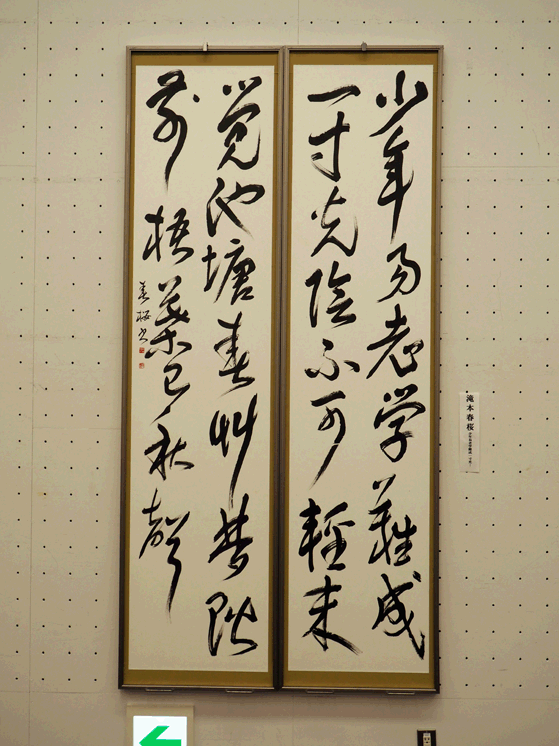 少年易老学難成
一寸光陰不可軽未
覚池塘春艸夢階
前梧葉已秋声
春桜書
滝本春桜